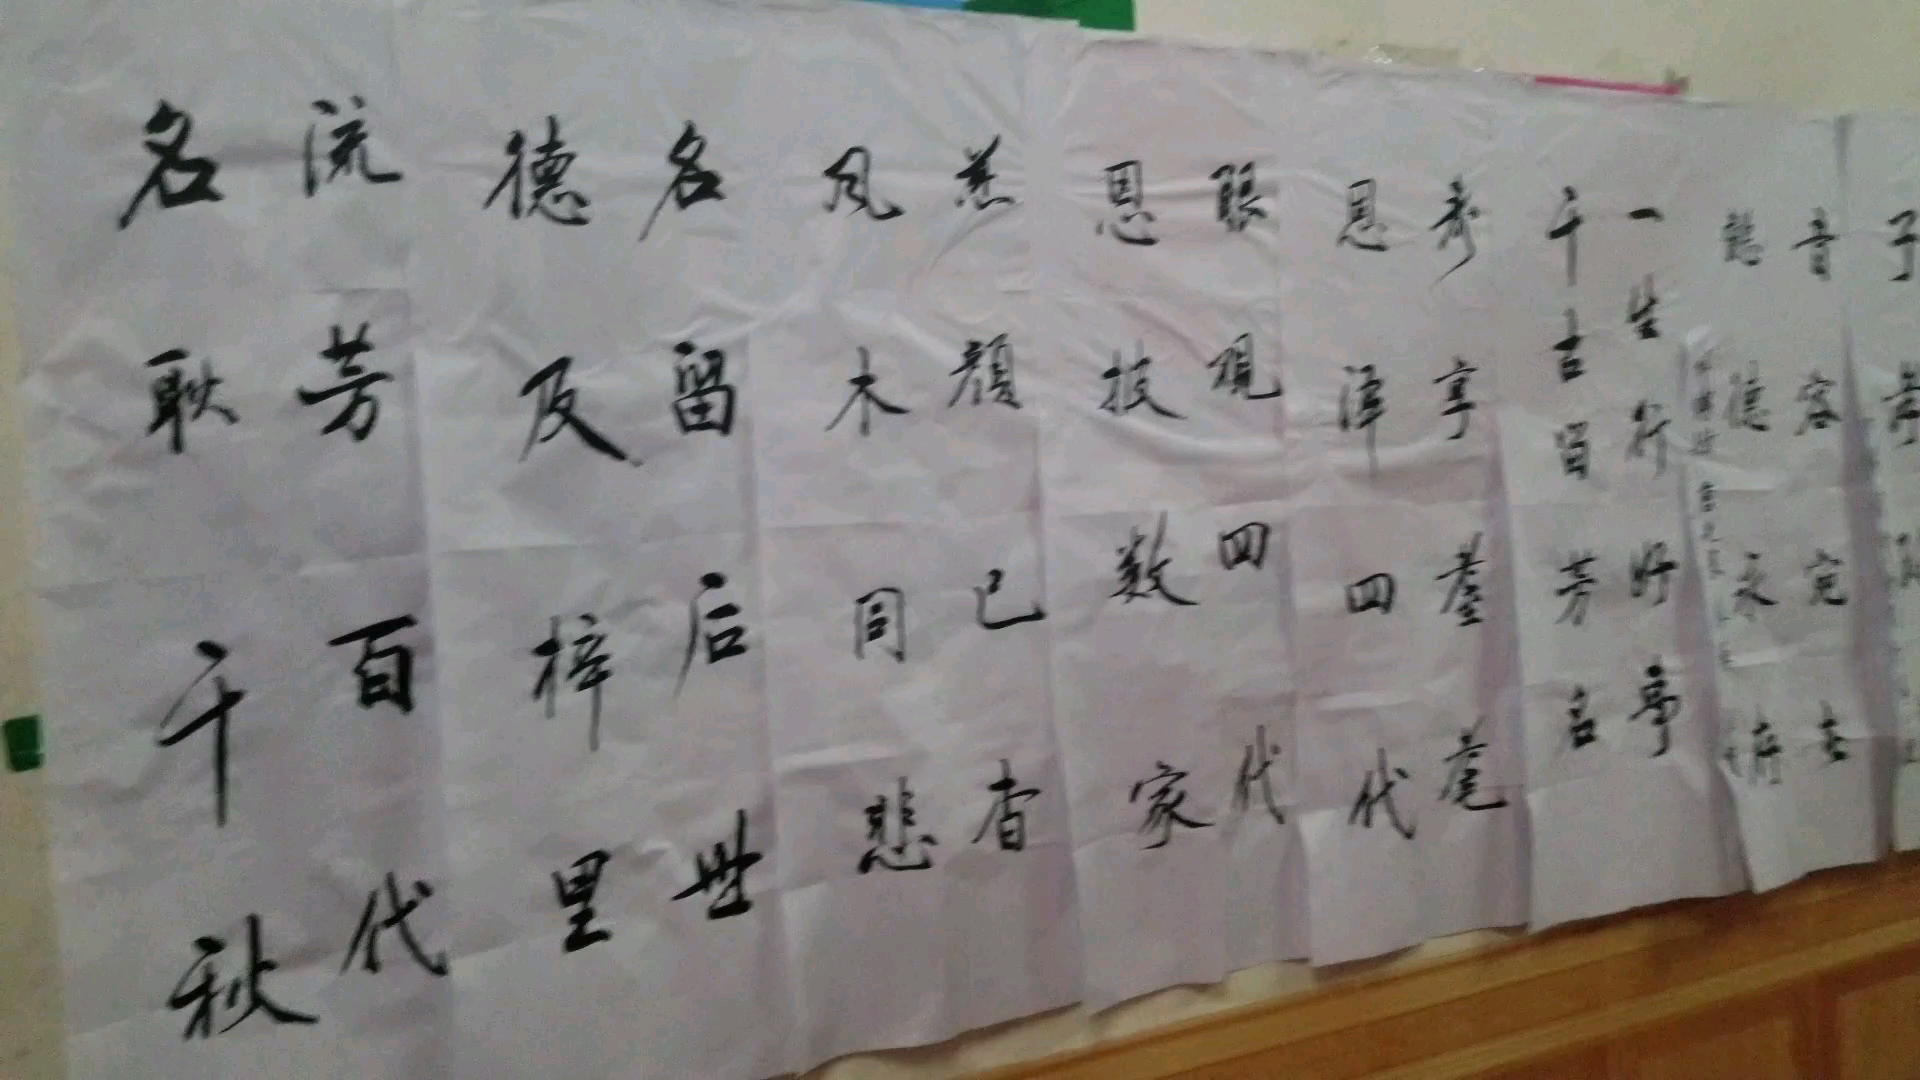 音容宛在
懿德永
一生行好事
千古留芳名
寿享耋耄
恩泽四代
眼視四代
恩技数家
慈颜已杳
风木同悲
名留后世
德及梓里
流芳百代
名耿千秋